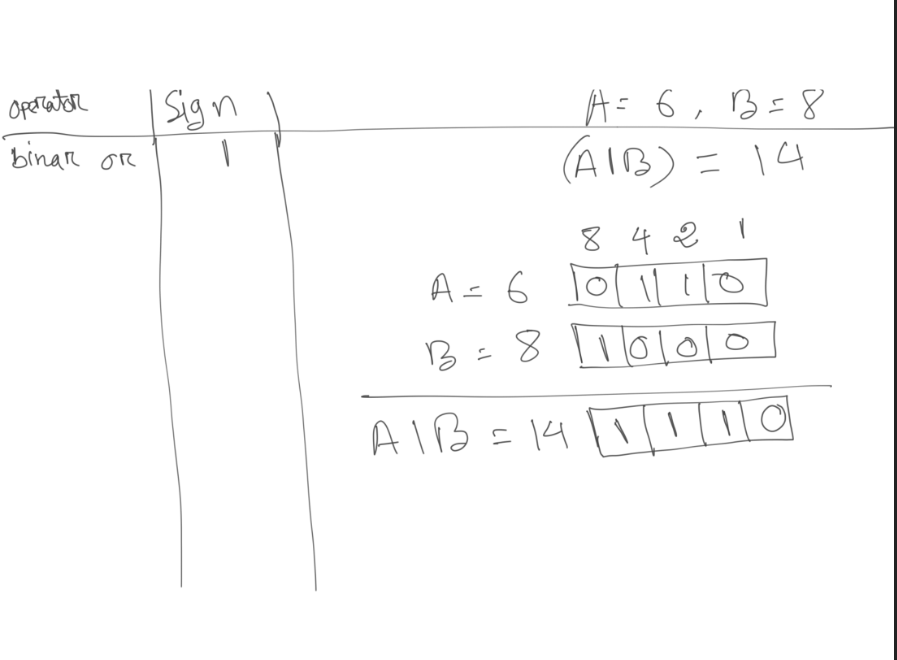 operator | Sign
A = 6, B = 8
binar or | |
(A|B) = 14
8 4 2 1
A = 6 0 1 1 0
B = 8 1 0 0 0
A|B = 14 1 1 1 0